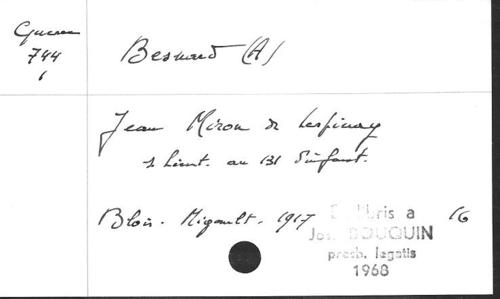 Guerre
744
Besnard (A)
Jean Miron de Lespinay
s/ Lieut. au 131 d'infant.
Blois. Migault. 1917
16
Ex libris a
Jos. BOUQUIN
presb. legatis
1968